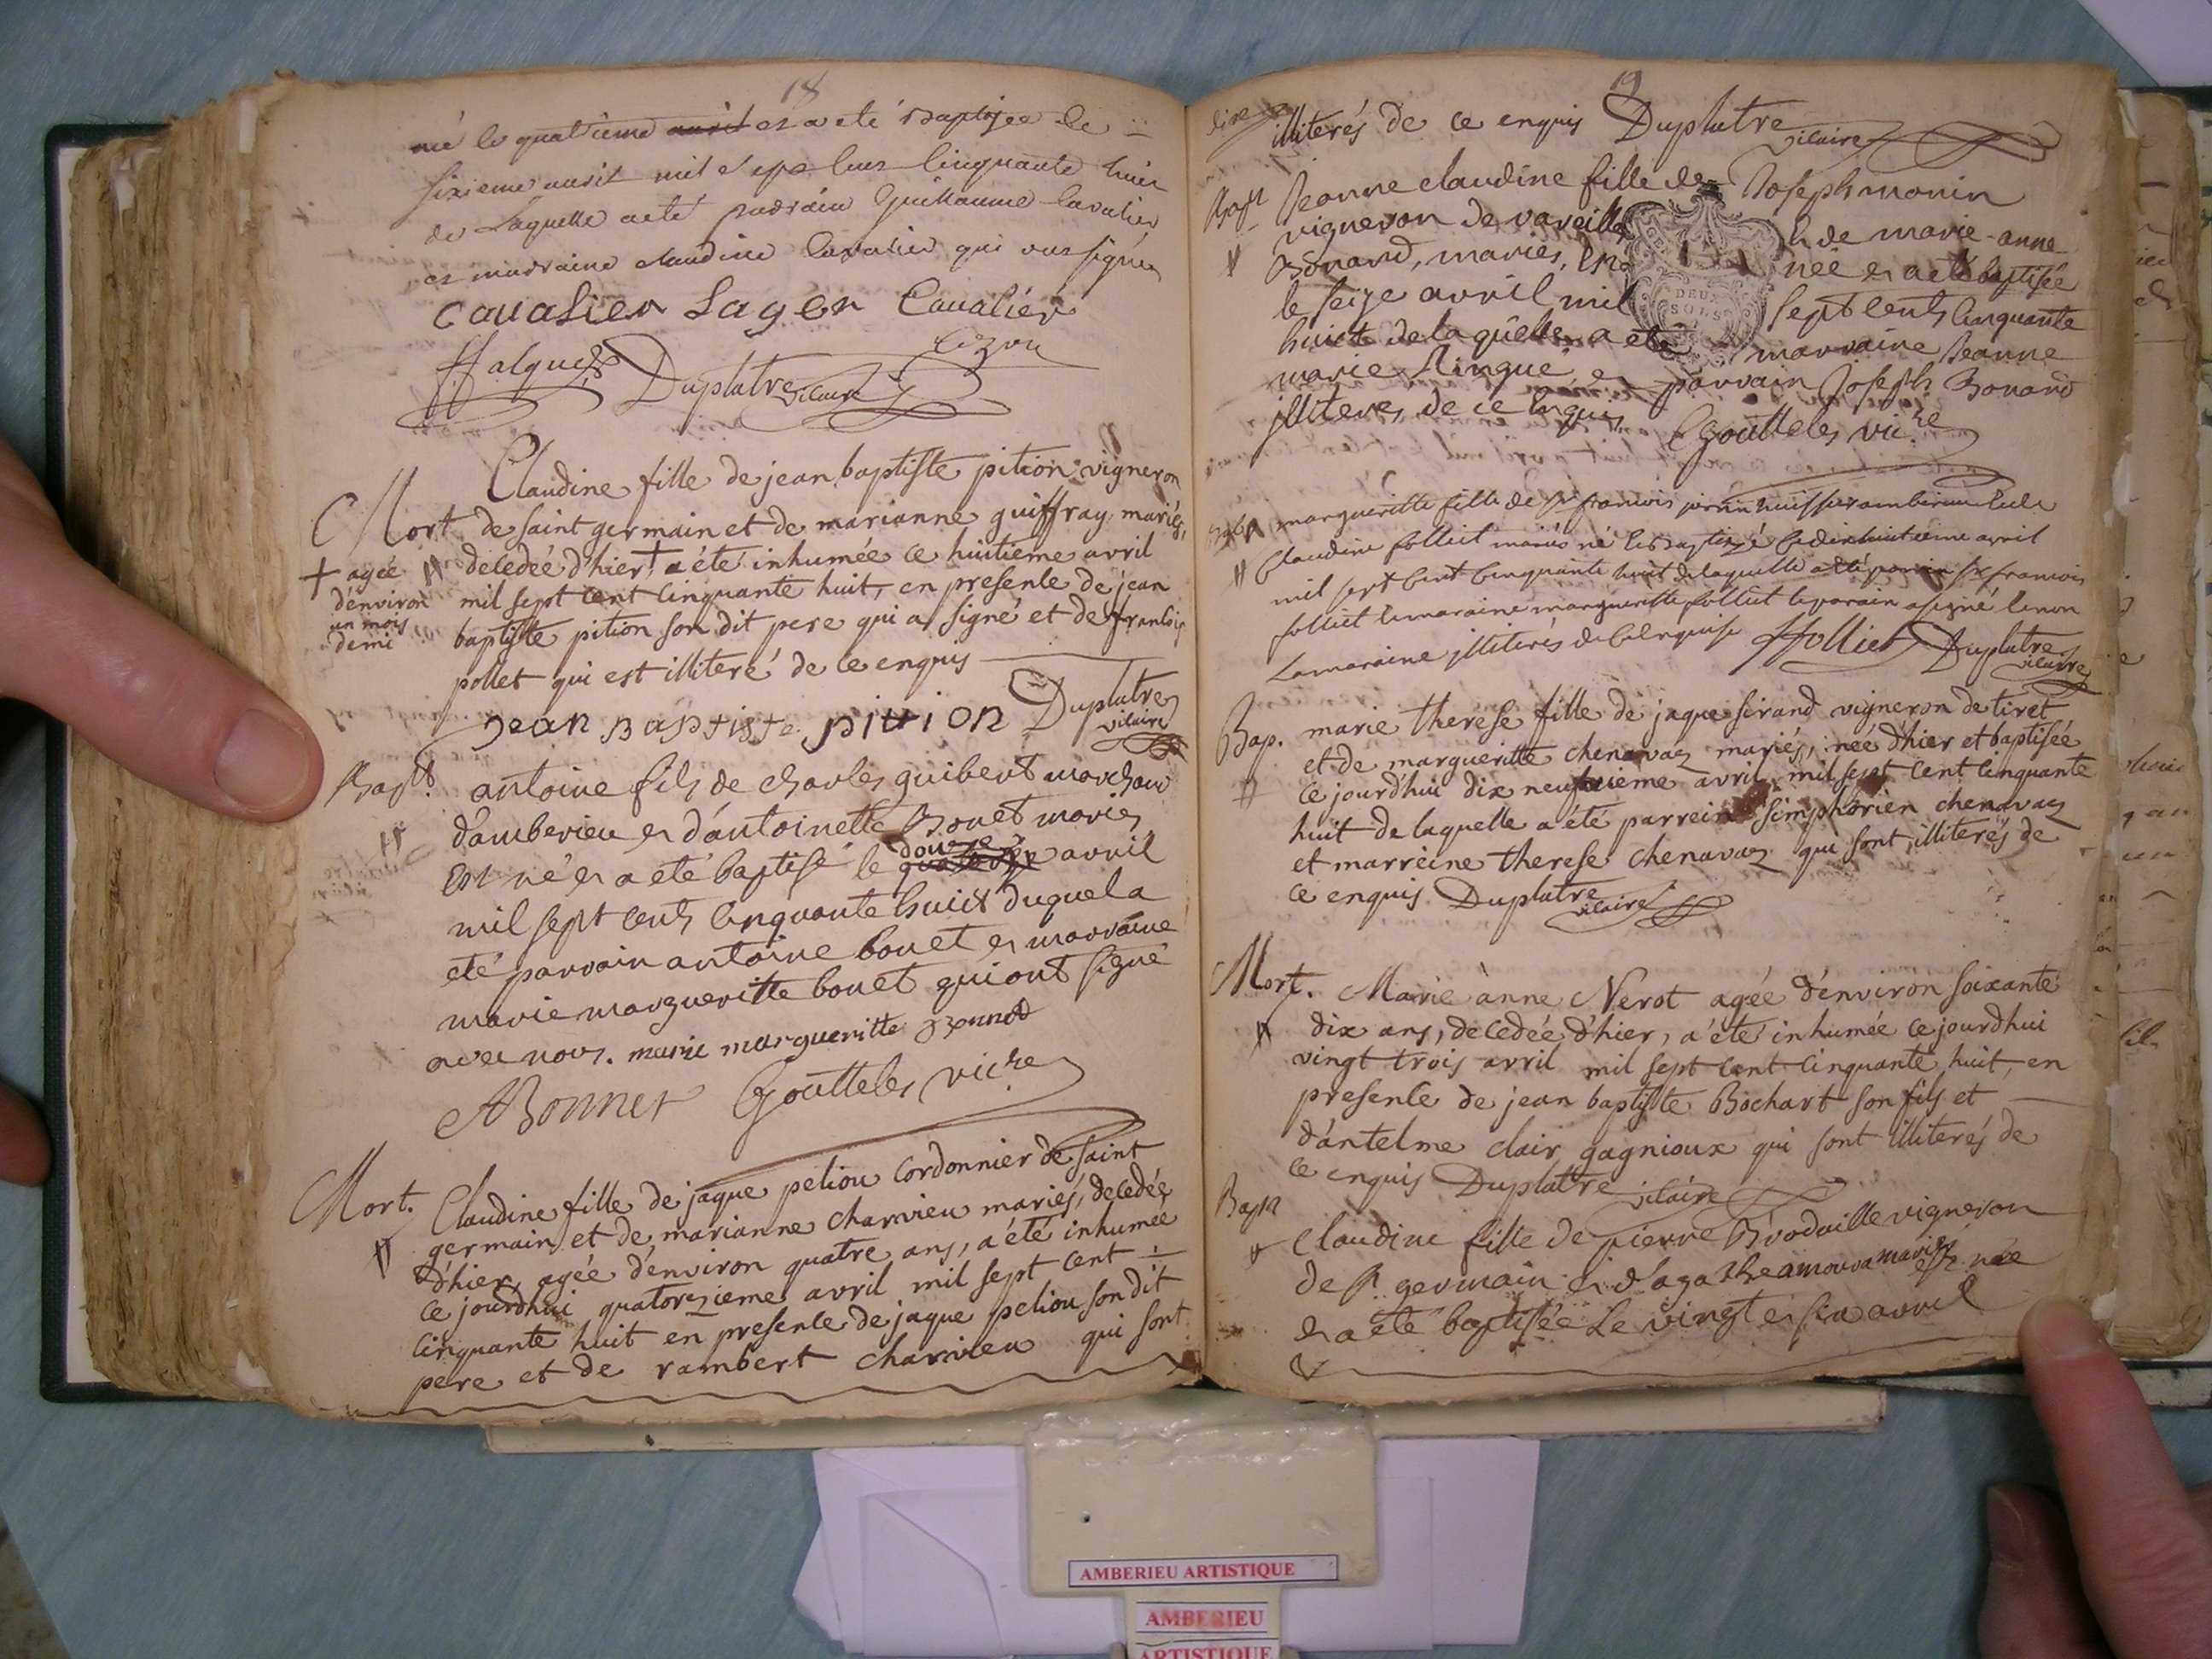 18
né le quatrieme avril et a eté Baptisee le
sixieme avril mil sept cens cinquante huit
de Laquelle a eté parrain Guillaume Cavalier
et marraine claudine Cavalier qui ont signés
cavalier Lager Cavalier
Duplatre vicaire
Claudine fille de jean baptiste pition vigneron
Mort de saint germain et de marianne guiffray mariés,
+ agée decedée d'hier + a été inhumée ce huitieme avril
d'environ mil sept cent cinquante huit, en presence de jean
un mois baptiste pition son dit pere qui a signé et de francois
demi pollet qui est illiteré de ce enquis
jean Baptiste pition Duplatre vicaire
Bapt. antoine fils de charles guibert marchand
d'amberieu et d'antoinette Bonet mariés
est né et a eté baptisé le douze quatorze avril
mil sept cents cinquante huict duquel a
eté parrain antoine bonet et marraine
marie margueritte bonet qui ont signé
avec nous. marie margueritte Bonnet
ABonnet Goutteles vic.re
Mort. Claudine fille de jaque peliou cordonnier de saint
germain et de marianne charvieu mariés, decedée
d'hier agée d'environ quatre ans, a été inhumée
ce jourdhui quatorzieme avril mil sept cent
cinquante huit en presence de jaque peliou son dit
pere et de rambert charvieu qui sont
19
illiterés de ce enquis Duplatre vicaire
Bapt Jeanne claudine fille de Joseph monin
vigneron de vareilles et de marie-anne
Bonard, mariés, est née et a eté baptisée
le seize avril mil sept cents cinquante
huict de laquelle a eté marraine Jeanne
marie Ringue et parrain Joseph Bonard
jlliteres de ce enquis Goutteles vic.re
DEUX SOLS
margueritte fille de sr francois huissier amberieu
Claudine folliet mariés né et baptizé le dixhuitieme avril
mil sept cent cinquante huit de laquelle a eté parain sr francois
folliet la maraine margueritte folliet le parain a signé et non
La maraine jlliterés de ce enquise ffolliet Duplatre vicaire
Bap. marie therese fille de jaque sirand vigneron de tiret
et de margueritte chenavaz mariés, née d'hier et baptisée
ce jourd'hui dix neuvieme avril mil sept cent cinquante
huit de laquelle a été parrein simphorien chenavaz
et marreine therese chenavaz qui sont illiterés de
ce enquis Duplatre vicaire
Mort. Marie ànne Nerot agée d'environ soixante
dix ans, decedée d'hier, a été inhumée ce jourdhui
vingt trois avril mil sept cent cinquante huit, en
presence de jean baptiste Bochart son fils et
d'antelme clair gagnioux qui sont illiterés de
ce enquis Duplatre vicaire
Bapt
Claudine fille de pierre Brodaille vigneron
de st germain et d'agathe amoura mariés est née
et a eté baptisée Le vingt et six avril
AMBERIEU ARTISTIQUE
AMBERIEU
ARTISTIQUE